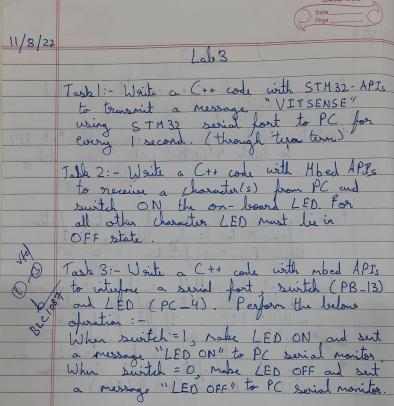 Date
Page
11/8/22
Lab 3
Task 1:- Write a C++ code with STM32-APIs
to transmit a message "VITSENSE"
using STM32 serial port to PC for
every 1 second. (through tera term)
Task 2:- Write a C++ code with Mbed APIs
to receive a character(s) from PC and
switch ON the on-board LED. For
all other character LED must be in
OFF state.
Task 3:- Write a C++ code with mbed APIs
to interface a serial port, switch (PB_13)
and LED (PC_4). Perform the below
operation :-
When switch=1, make LED ON and sent
a message "LED ON" to PC serial monitor.
When switch = 0, make LED OFF and sent
a message "LED OFF" to PC serial monitor.